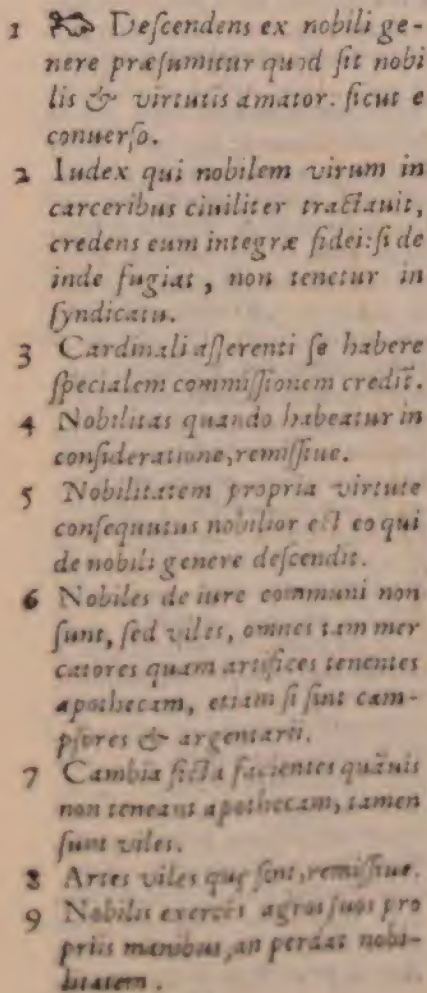 1 ☞ Deſcendens ex nobili ge-
nere præſumitur quod ſit nobi
lis & virtutis amator. ſicut e
conuerſo.
2 Iudex qui nobilem virum in
carceribus ciuiliter tractauit,
credens eum integræ fidei: ſi de
inde fugiat, non tenetur in
ſyndicatu.
3 Cardinali aſſerenti ſe habere
ſpecialem commiſſionem credit̃.
4 Nobilitas quando habeatur in
conſideratione, remiſſiue.
5 Nobilitatem propria virtute
conſequutus nobilior eſt eo qui
de nobili genere deſcendit.
6 Nobiles de iure communi non
ſunt, ſed viles, omnes tam mer
catores quam artifices tenentes
apothecam, etiam ſi ſint cam-
pſores & argentarii.
7 Cambia ficta facientes quãuis
non teneant apothecam, tamen
ſunt viles.
8 Artes viles quę ſint, remiſſiue.
9 Nobilis exercẽs agros ſuos pro
priis manibus, an perdat nobi-
litatem.